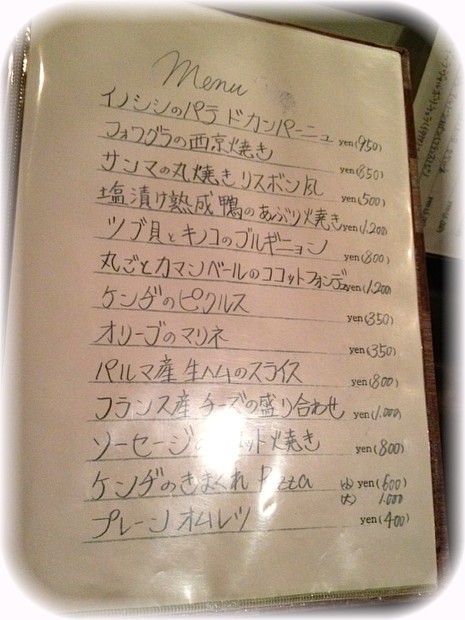 Menu
イノシシのパテ ドカンパーニュ yen(950)
フォワグラの西京焼き yen(850)
サンマの丸焼き リスボン風 yen(500)
塩漬け熟成鴨のあぶり焼き yen(1.200)
ツブ貝とキノコのブルギニョン yen(800)
丸ごとカマンベールのココットフォンデュ yen(1.200)
ケンヂのピクルス yen(350)
オリーブのマリネ yen(350)
パルマ産 生ハムのスライス yen(800)
フランス産 チーズの盛り合わせ yen(1.000)
ソーセージの ット焼き yen(800)
ケンヂのきまぐれ Pizza (小) yen(600)
(大) 1.000
プレーンオムレツ yen(400)